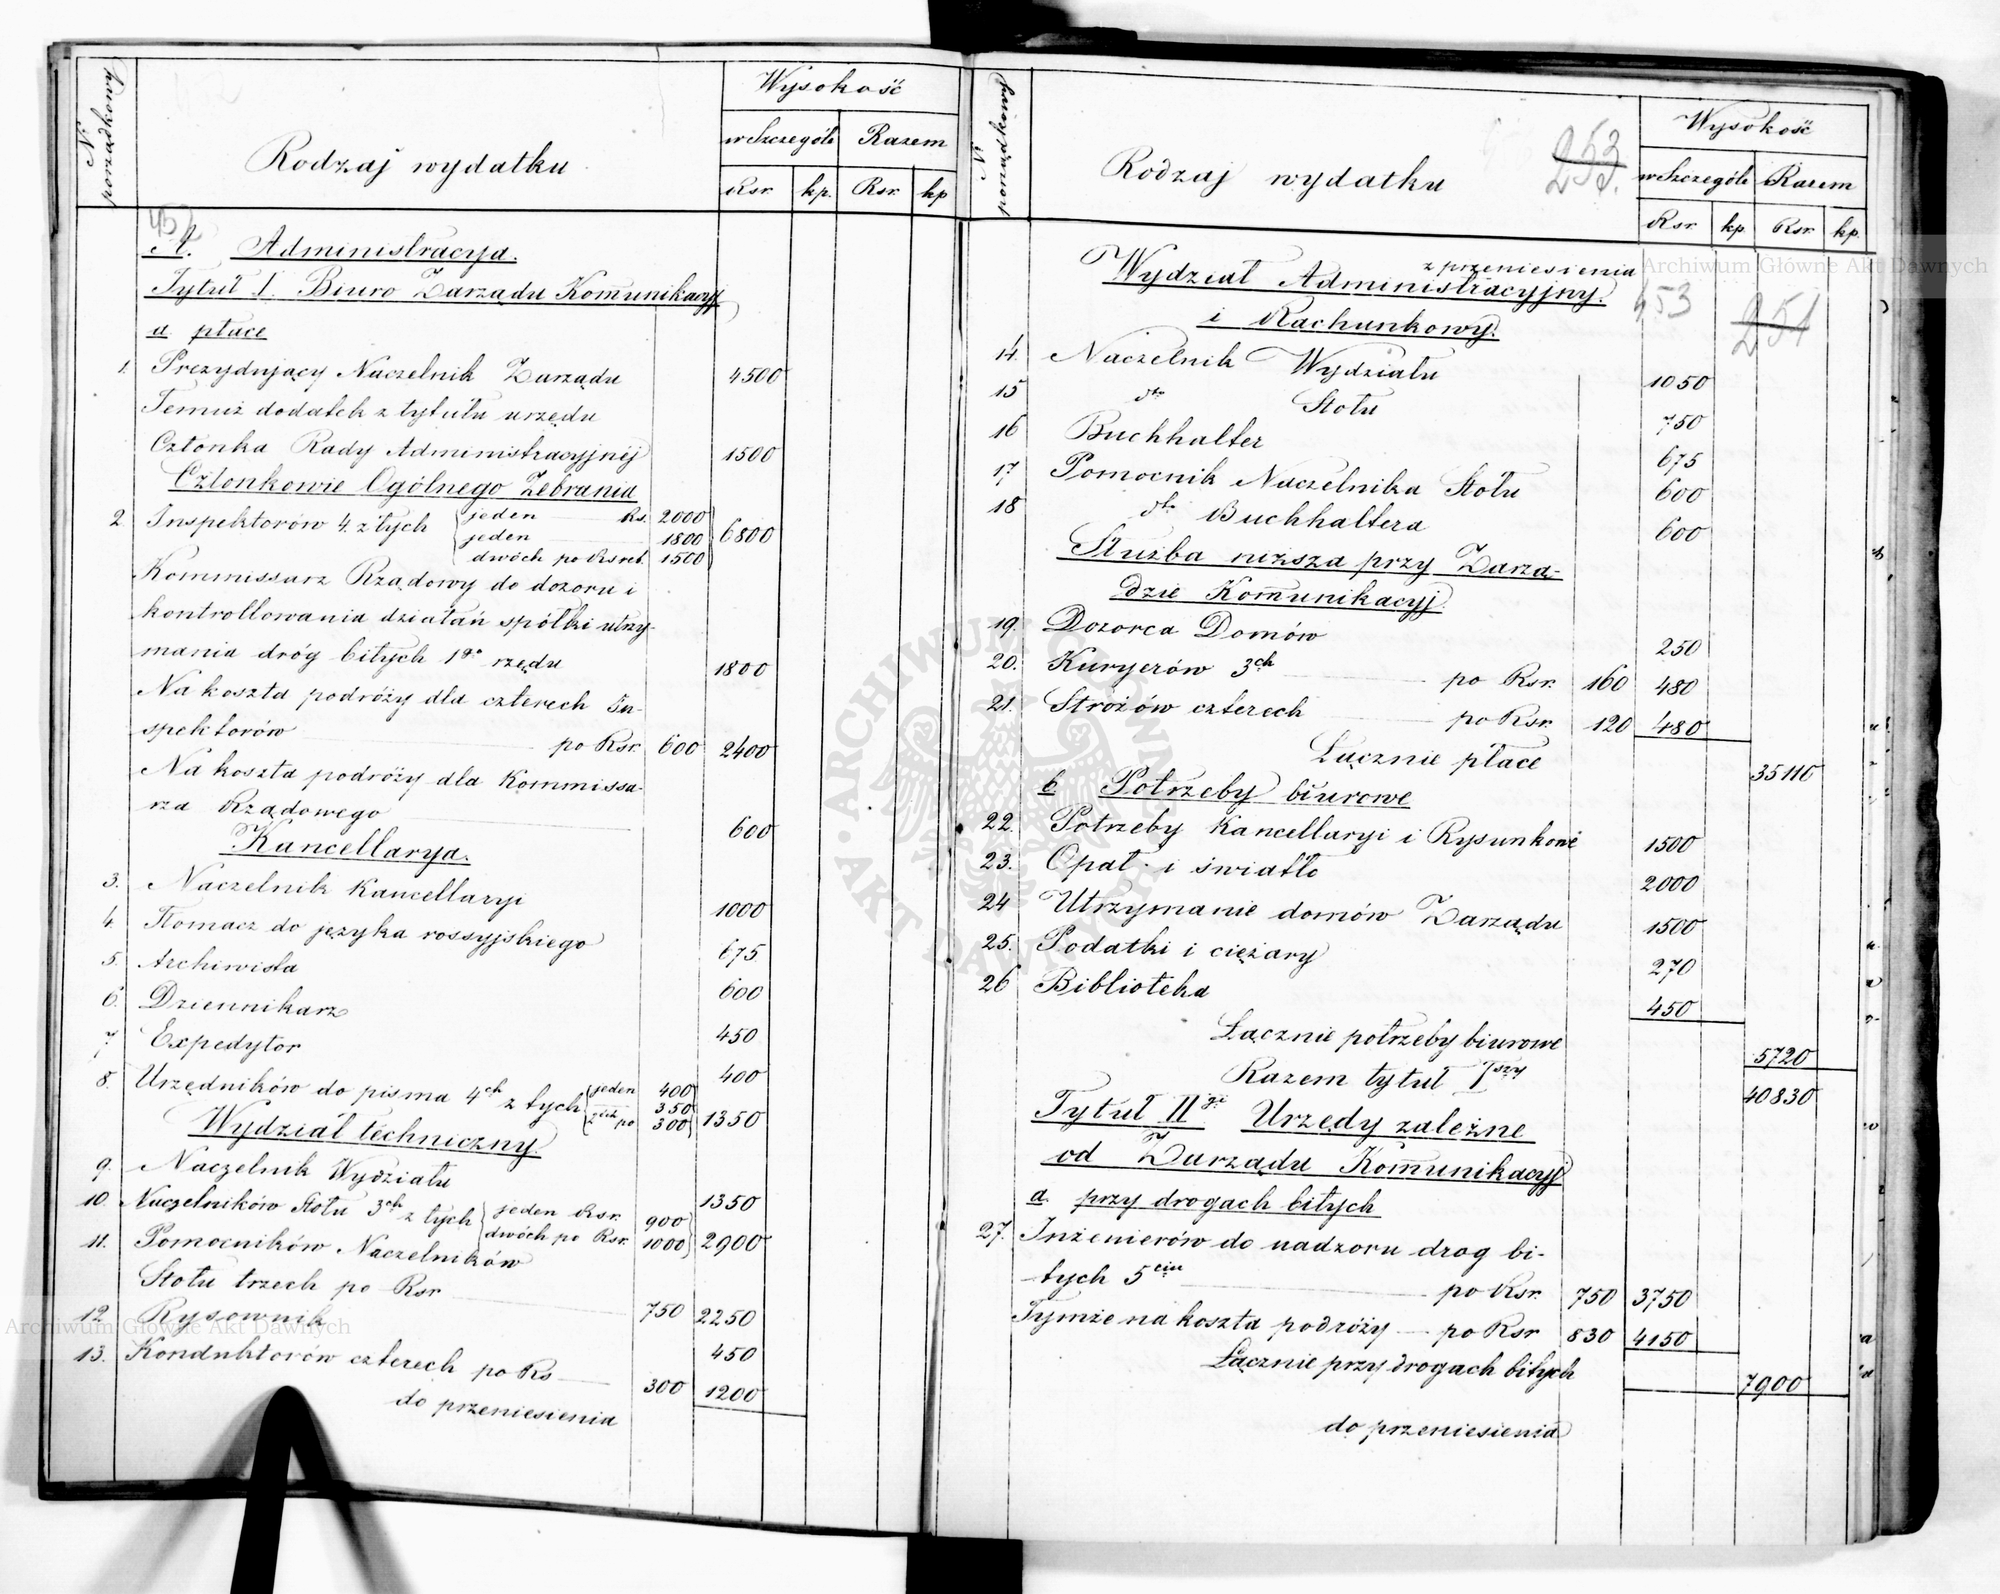 N porządkowy
Rodzaj wydatku
Wysokość
w Szczególe Razem
Rsr. kp. Rsr. kp
452
A. Administracya.
Tytuł I. Biuro Zarządu Komunikacyj
a płace
1. Prezydujący Naczelnik Zarządu 4500
Temuż dodatek z tytułu urzędu
Członka Rady Administracyjnéj 1500
Członkowie Ogólnego Zebrania
2 Inspektorów 4. z tych jeden Rs. 2000
jeden 1800 6800
dwóch po Rsreb. 1500
Kommissarz Rządowy do dozoru i
kontrollowania działań spółki utrzy-
mania dróg bitych 1go rzędu 1800
Na koszta podróży dla czterech In-
spektorów po Rsr. 600 2400
Na koszta podróży dla Kommissa-
rza Rządowego 600
Kancellarya.
3. Naczelnik Kancellaryi 1000
4. Tłomacz do języka rossyjskiego 675
5. Archiwista 600
6. Dziennikarz 450
7 Expedytor 400
8. Urzędników do pisma 4ch z tych jeden 400
350 1350
po 300
Wydział techniczny.
9. Naczelnik Wydziału 1350
10. Naczelników Stołu 3ch z tych jeden Rsr. 900
dwóch po Rsr. 1000 2900
11. Pomocników Naczelników
Stołu trzech po Rsr 750 2250
12 Rysownik 450
13. Konduktorów czterech po Rs 300 1200
do przeniesienia
N porządkowy
Rodzaj wydatku
253
253.
Wysokość
w Szczególe Razem
Rsr. kp. Rsr. kp.
z przeniesienia
Wydział Administracyjny.
i Rachunkowy.
453 251
14. Naczelnik Wydziału 1050
15 dto Stołu 750
16 Buchhalter 675
17 Pomocnik Naczelnika Stołu 600
18 dto Buchhaltera 600
Służba niższa przy Zarzą-
dzie Komunikacyj.
19. Dozorca Domów 250
20. Kuryerów 3ch po Rsr. 160 480
21. Stróżów czterech po Rsr. 120 480
Łącznie płace 35110
b Potrzeby biurowe
22. Potrzeby Kancellaryi i Rysunkowe 1500
23. Opał i światło 2000
24 Utrzymanie domów Zarządu 1500
25. Podatki i ciężary 270
26 Biblioteka 450
Łącznie potrzeby biurowe 5720
Razem tytuł Iszy 40830
Tytuł IIgi Urzędy zależne
od Zarządu Komunikacyj
a. przy drogach bitych
27. Inżenierów do nadzoru dróg bi-
tych 5ciu po Rsr. 750 3750
Tymże na koszta podróży po Rsr 830 4150
Łącznie przy drogach bitych 7900
do przeniesienia
Archiwum Główne Akt Dawnych
Archiwum Główne Akt Dawnych
ARCHIWUM GŁÓWNE AKT DAWNYCH